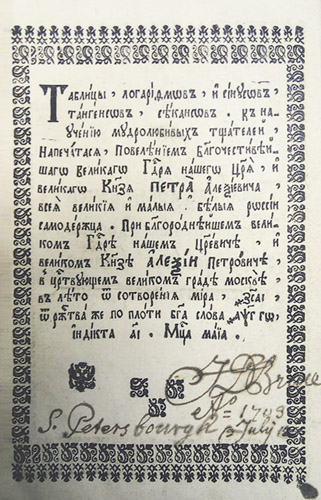 Таблицы, логариѳмѡвъ, и сінусѡвъ,
тангенсѡвъ, сѣкансѡвъ. къ на
ученію мудролюбивыхъ тщателеи
Напечатася, Повелѣніемъ Благочестивѣи
шагѡ великагѡ Гдⷭ҇ря нашегѡ Цр҃я, и
великагѡ Кн҃зя ПЕТРА Алеѯіевича
всея великія и малыя и бѣлыя рѡссіи
самодержца. При благороднѣишемъ вели
комъ Гдⷭ҇рѣ нашемъ Цр҃евичѣ, и
великомъ Кн҃зѣ АЛЕѮІИ Петровичѣ,
в црⷭ҇твующемъ великомъ градѣ москвѣ,
в лѣто ѿ сотворенія міра, ҂зсаі
ѿ ржⷭ҇тва же по плоти бг҃а слова ҂аѱг гѡ,
індікта аі. Мц҃а маіа.
S. Petersbourgh July